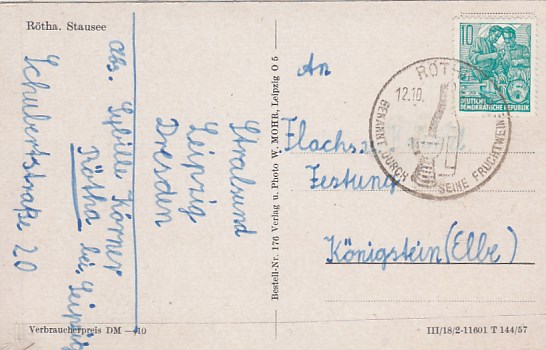 Rötha. Stausee
Abs. Sybille Körner
Rötha bei Leipzig
Schubertstraße 20
Stralsund
Leipzig
Dresden
Verbraucherpreis DM —10
Bestell-Nr. 176 Verlag u. Photo W. MOHR, Leipzig O 5
An
Flachs
Festung
Königstein (Elbe)
10
DEUTSCHE
DEMOKRATISCHE REPUBLIK
RÖTH
12.10.
BEKANNT DURCH SEINE FRUCHTWEIN
III/18/2-11601 T 144/57